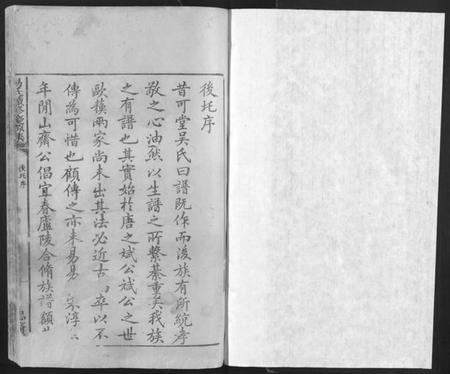 後圫序
昔可堂吳氏曰譜既作而後族有所統孝
敬之心油然以生譜之所繫綦重矣我族
之有譜也其實始於唐之斌公斌公之世
歐蘓兩家尚未出其法必近古 卒以不
傳為可惜也顧傳之亦未易易 宋淳
年間山齋公倡宜春廬陵合脩族譜額
後圫序